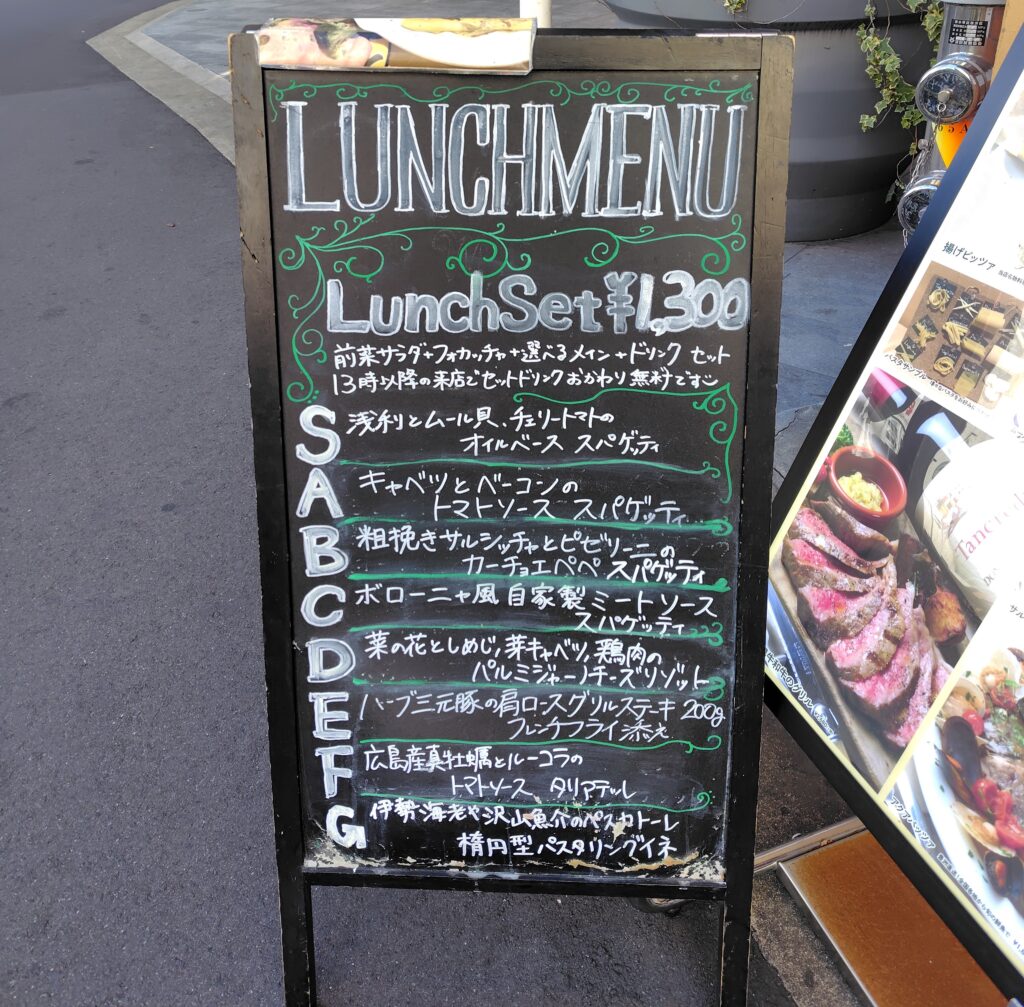 LUNCHMENU
LunchSet ¥1,300
前菜サラダ+フォカッチャ+選べるメイン+ドリンク セット
13時以降の来店でセットドリンクおかわり無料です
S 浅利とムール貝、チェリートマトの
オイルベース スパゲッティ
A キャベツとベーコンの
トマトソース スパゲッティ
B 粗挽きサルシッチャとピゼリーニの
カーチョエペペ スパゲッティ
C ボローニャ風 自家製 ミートソース
スパゲッティ
D 菜の花としめじ,芽キャベツ,鶏肉の
パルミジャーノチーズリゾット
E ハーブ三元豚の肩ロースグリルステーキ 200g
フレンチフライ添え
F 広島産真牡蠣とルーコラの
トマトソース タリアテッレ
G 伊勢海老や沢山魚介のペスカトーレ
楕円型パスタリングイネ
揚げピッツァ
パスタサンプル
アクアパッツァ